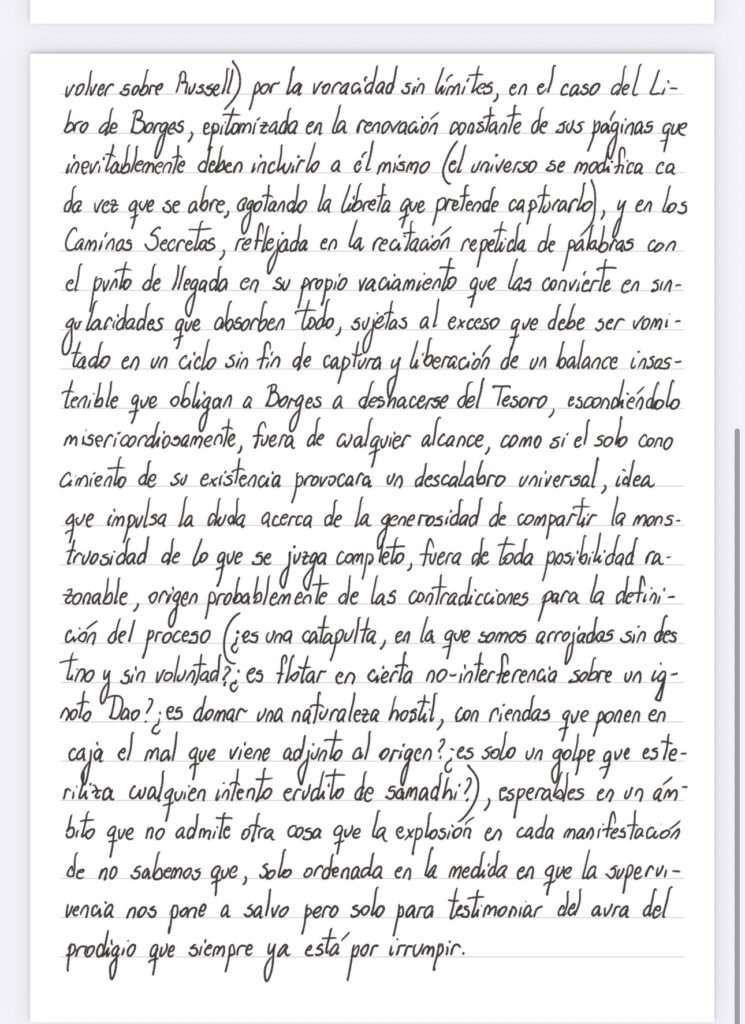 volver sobre Russell) por la voracidad sin límites, en el caso del Li-
bro de Borges, epitomizada en la renovación constante de sus páginas que
inevitablemente deben incluirlo a él mismo (el universo se modifica ca
da vez que se abre, agotando la libreta que pretende capturarlo), y en los
Caminos Secretos, reflejada en la recitación repetida de palabras con
el punto de llegada en su propio vaciamiento que las convierte en sin-
gularidades que absorben todo, sujetas al exceso que debe ser vomi-
tado en un ciclo sin fin de captura y liberación de un balance insos-
tenible que obligan a Borges a deshacerse del Tesoro, escondiéndolo
misericordiosamente, fuera de cualquier alcance, como si el solo cono
cimiento de su existencia provocara un descalabro universal, idea
que impulsa la duda acerca de la generosidad de compartir la mons-
truosidad de lo que se juzga completo, fuera de toda posibilidad ra-
zonable, origen probablemente de las contradicciones para la defini-
ción del proceso (¿es una catapulta, en la que somos arrojadas sin des
tino y sin voluntad? ¿es flotar en cierta no-interferencia sobre un ig-
noto Dao? ¿es domar una naturaleza hostil, con riendas que ponen en
caja el mal que viene adjunto al origen? ¿es solo un golpe que este-
riliza cualquien intento erudito de samadhi?), esperables en un ám-
bito que no admite otra cosa que la explosión en cada manifestación
de no sabemos que, solo ordenada en la medida en que la supervi-
vencia nos pone a salvo pero solo para testimoniar del aura del
prodigio que siempre ya está por irrumpir.